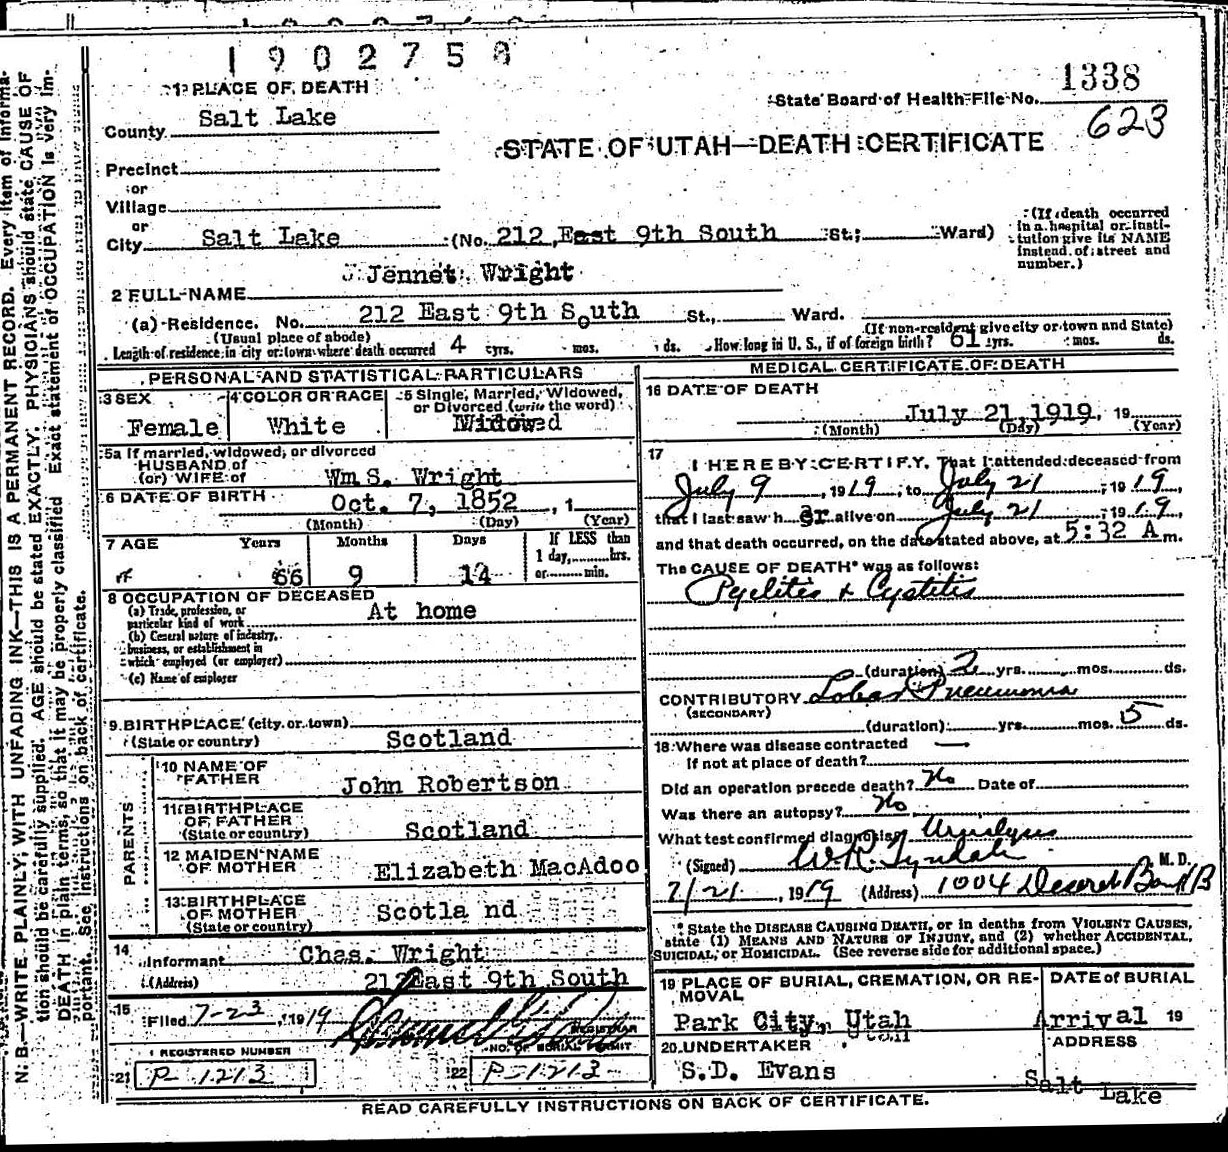 1902758
1338
1 PLACE OF DEATH
State Board of Health File No.
623
County Salt Lake
STATE OF UTAH—DEATH CERTIFICATE
Precinct
or
Village
or
City Salt Lake (No. 212 East 9th South St.; Ward)
(If death occurred in a hospital or institution give its NAME instead of street and number.)
2 FULL NAME Jennet Wright
(a) Residence. No. 212 East 9th South St., Ward.
(Usual place of abode) (If non-resident give city or town and State)
Length of residence in city or town where death occurred 4 yrs. mos. ds. How long in U. S., if of foreign birth? 61 yrs. mos. ds.
PERSONAL AND STATISTICAL PARTICULARS
3 SEX Female
4 COLOR OR RACE White
5 Single, Married, Widowed, or Divorced (write the word) Widowed
5a If married, widowed, or divorced
HUSBAND of
(or) WIFE of Wm S. Wright
6 DATE OF BIRTH Oct. 7, 1852, 1
(Month) (Day) (Year)
7 AGE Years Months Days If LESS than
1 day, hrs.
or min.
66 9 14
8 OCCUPATION OF DECEASED
(a) Trade, profession, or
particular kind of work At home
(b) General nature of industry,
business, or establishment in
which employed (or employer)
(c) Name of employer
9 BIRTHPLACE (city or town)
(State or country) Scotland
PARENTS
10 NAME OF
FATHER John Robertson
11 BIRTHPLACE
OF FATHER
(State or country) Scotland
12 MAIDEN NAME
OF MOTHER Elizabeth MacAdoo
13 BIRTHPLACE
OF MOTHER
(State or country) Scotla nd
14
Informant Chas. Wright
(Address) 212 East 9th South
15
Filed 7-23, 1919
REGISTRAR
REGISTERED NUMBER
NO. OF BURIAL PERMIT
21 P-1213
22 P-1213
MEDICAL CERTIFICATE OF DEATH
16 DATE OF DEATH
July 21, 1919, 19
(Month) (Day) (Year)
17
I HEREBY CERTIFY, That I attended deceased from
July 9, 1919, to July 21, 1919,
that I last saw her alive on July 21, 1919,
and that death occurred, on the date stated above, at 5:32 A m.
The CAUSE OF DEATH* was as follows:
Pyelitis & Cystitis
(duration) 2 yrs. mos. ds.
CONTRIBUTORY Lobar Pneumonia
(SECONDARY)
(duration) yrs. mos. 5 ds.
18 Where was disease contracted
If not at place of death? —
Did an operation precede death? No Date of
Was there an autopsy? No
What test confirmed diagnosis? Urinalysis
(Signed) W.R. Tyndale, M. D.
7/21, 1919 (Address) 1004 Deseret Bank B
* State the DISEASE CAUSING DEATH, or in deaths from VIOLENT CAUSES,
state (1) MEANS AND NATURE OF INJURY, and (2) whether ACCIDENTAL,
SUICIDAL, or HOMICIDAL. (See reverse side for additional space.)
19 PLACE OF BURIAL, CREMATION, OR REMOVAL
Park City, Utah
DATE of BURIAL
Arrival 19
20 UNDERTAKER
S.D. Evans
ADDRESS
Salt Lake
READ CAREFULLY INSTRUCTIONS ON BACK OF CERTIFICATE.
N. B.—WRITE PLAINLY, WITH UNFADING INK—THIS IS A PERMANENT RECORD. Every item of informa-
tion should be carefully supplied. AGE should be stated EXACTLY. PHYSICIANS should state CAUSE OF
DEATH in plain terms, so that it may be properly classified. Exact statement of OCCUPATION is very im-
portant. See instructions on back of certificate.